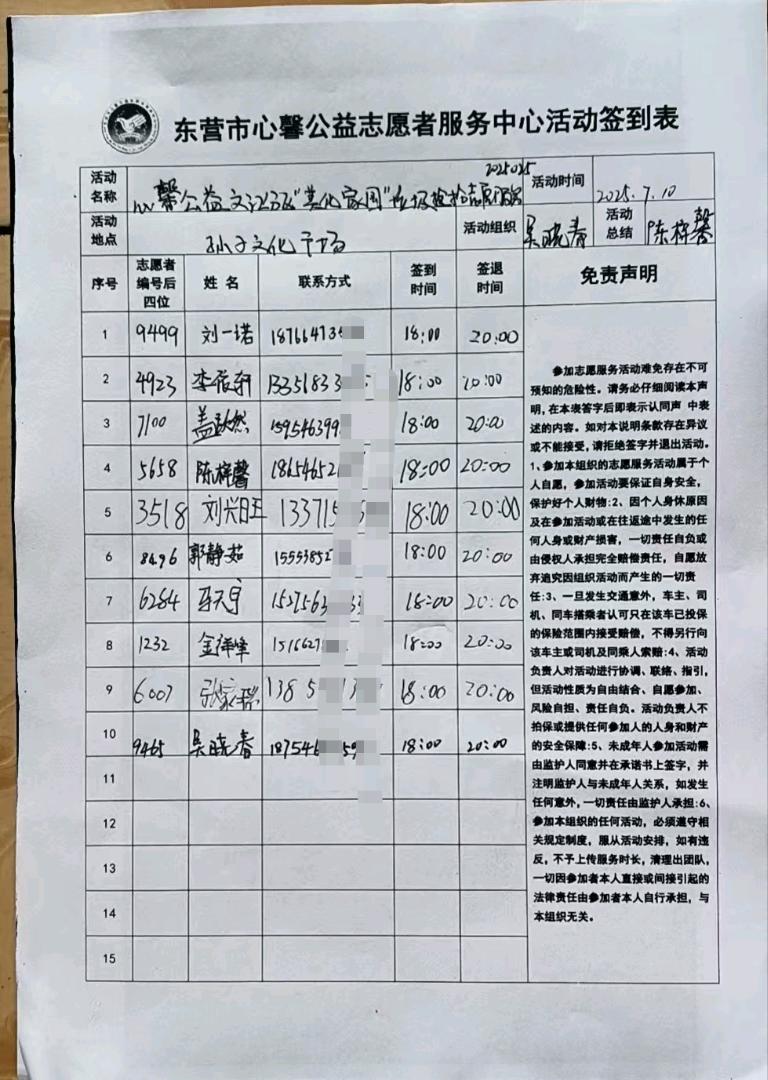 东营市心馨公益志愿者服务中心活动签到表
2025025
活动名称 心馨公益 "美化家园"垃圾捡拾志愿服务 活动时间 2025.7.10
活动地点 孙子文化广场 活动组织 吴晓春 活动总结 陈梓馨
序号 志愿者编号后四位 姓名 联系方式 签到时间 签退时间 免责声明
1 9499 刘一诺 18766473 18:00 20:00
2 4923 1335183 18:00 20:00
3 7100 盖 159546399 18:00 20:00
4 5658 陈梓馨 18654652 18:00 20:00
5 3518 刘兴旺 133715 18:00 20:00
6 8496 郭静茹 15553852 18:00 20:00
7 6284 1527563 18:00 20:00
8 1232 金祥峰 1516627 18:00 20:00
9 6007 张家瑞 138 5 18:00 20:00
10 9465 吴晓春 187546 18:00 20:00
11
12
13
14
15
参加志愿服务活动难免存在不可
预知的危险性。请务必仔细阅读本声
明,在本表签字后即表示认同声 中表
述的内容。如对本说明条款存在异议
或不能接受,请拒绝签字并退出活动。
1、参加本组织的志愿服务活动属于个
人自愿,参加活动要保证自身安全,
保护好个人财物:2、因个人身休原因
及在参加活动或在往返途中发生的任
何人身或财产损害,一切责任自负或
由侵权人承担完全赔偿责任,自愿放
弃追究因组织活动而产生的一切责
任:3、一旦发生交通意外,车主、司
机、同车搭乘者认可只在该车已投保
的保险范围内接受赔偿,不得另行向
该车主或司机及同乘人索赔:4、活动
负责人对活动进行协调、联络、指引,
但活动性质为自由结合、自愿参加、
风险自担、责任自负。活动负责人不
担保或提供任何参加人的人身和财产
的安全保障:5、未成年人参加活动需
由监护人同意并在承诺书上签字,并
注明监护人与未成年人关系,如发生
任何意外,一切责任由监护人承担:6、
参加本组织的任何活动,必须遵守相
关规定制度,服从活动安排,如有违
反,不予上传服务时长,清理出团队,
一切因参加者本人直接或间接引起的
法律责任由参加者本人自行承担,与
本组织无关。